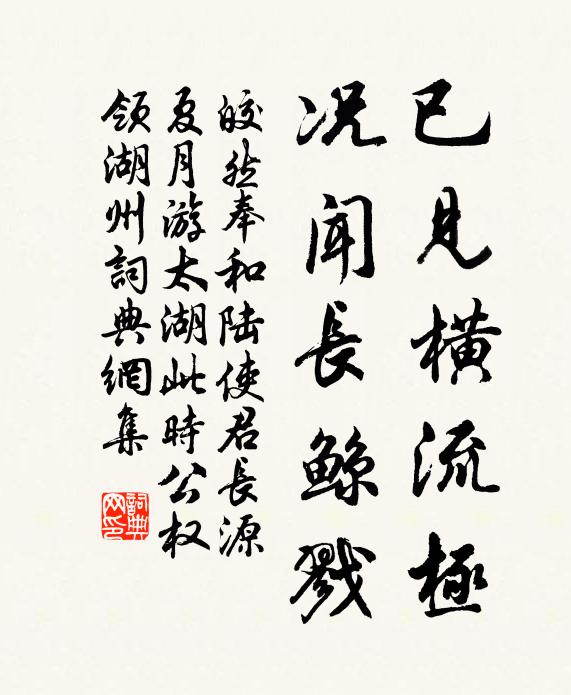 已見橫流極
況聞長鯨戮
皎然奉和陸使君長源
夏月游太湖此時公权
領湖州詞典網集
詞典网印